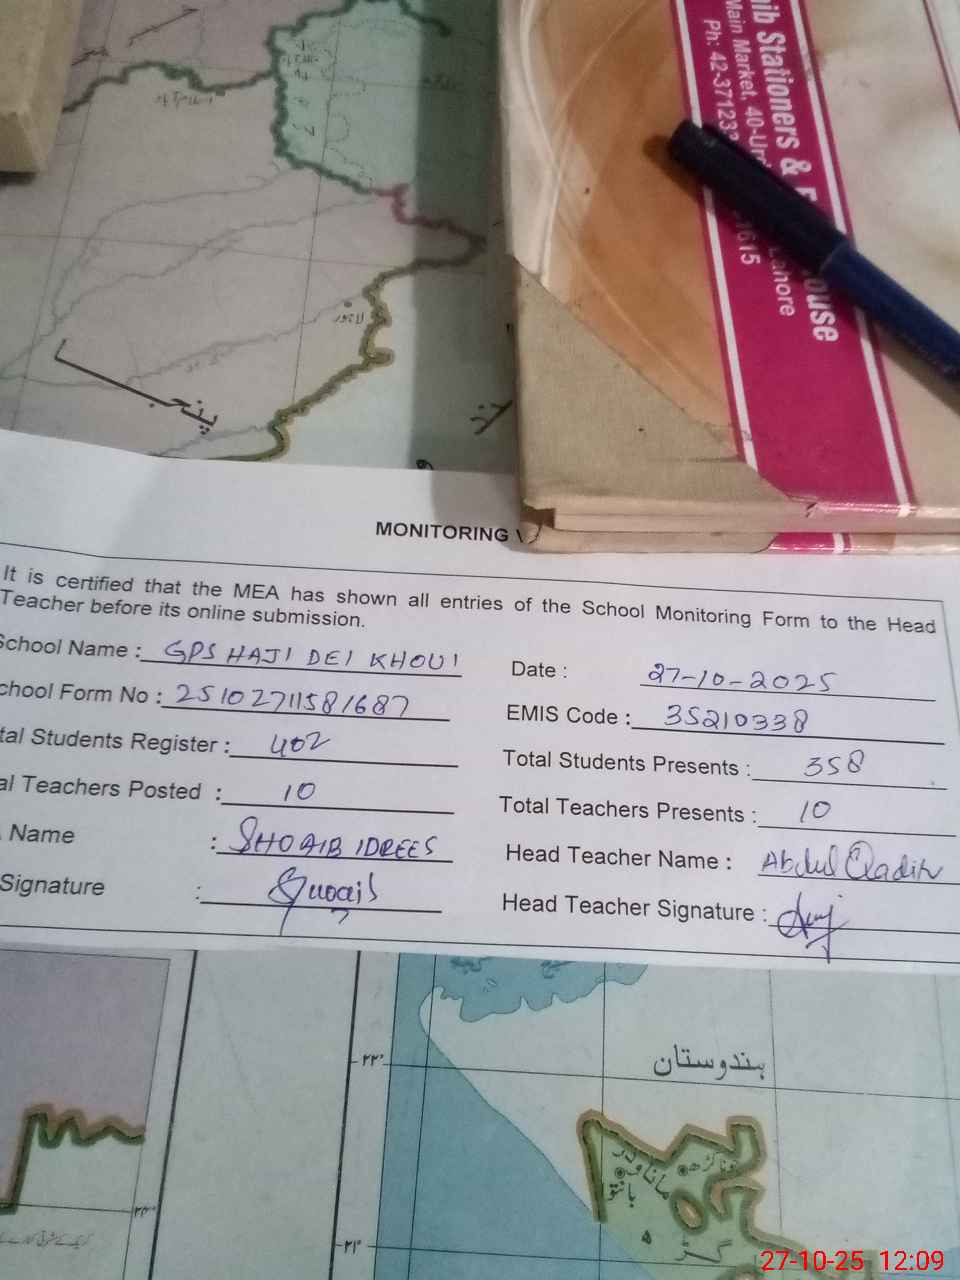 پنجاب
Stationers &
Main Market, 40-Ur
Ph: 42-37123
1615
ahore
ouse
MONITORING
It is certified that the MEA has shown all entries of the School Monitoring Form to the Head
Teacher before its online submission.
School Name : GPS HAJI DEI KHOUI
Date : 27-10-2025
chool Form No : 25102711581687
EMIS Code : 35210338
tal Students Register : 402
Total Students Presents : 358
al Teachers Posted : 10
Total Teachers Presents : 10
Name : SHOAIB IDREES
Head Teacher Name : Abdul Qadir
Signature : Shoaib
Head Teacher Signature :
ہندوستان
۲۲°
جوناگڑھ
ماناودر
بانتوا
گڑھ
۲۱°
27-10-25 12:09